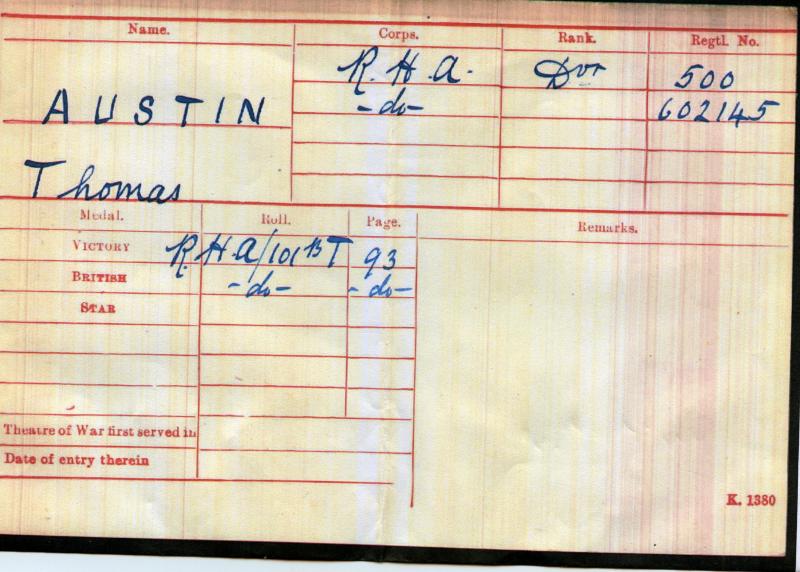 Name. Corps. Rank. Regtl. No.
R.H.A. Dvr 500
AUSTIN -do- 602145
Thomas
Medal. Roll. Page. Remarks.
VICTORY R.H.A/101BT 93
BRITISH -do- -do-
STAR
Theatre of War first served in
Date of entry therein
K. 1380